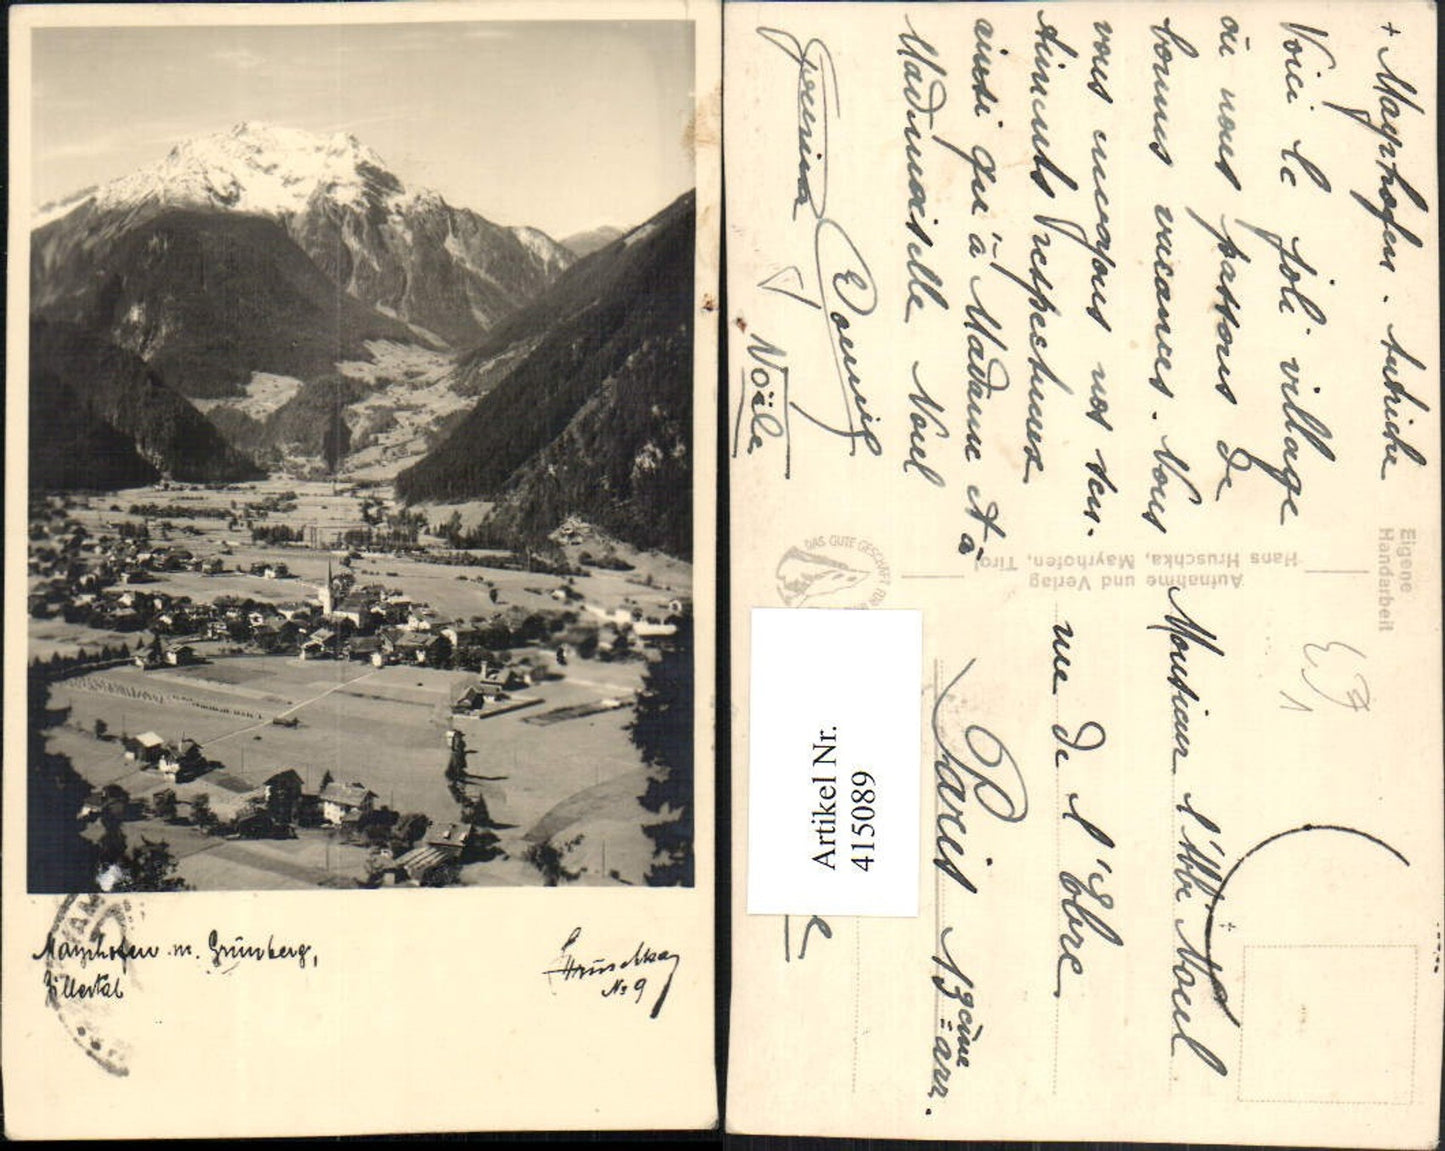 Mayrhofen m. Grünberg,
Zillertal
Hruschka
No 9
+ Mayrhofen. Autriche
Voici le joli village
où nous passons de
bonnes vacances. Nous
vous envoyons nos sen-
timents respectueux
ainsi qu'à Madame N à
Mademoiselle Noul
Noële
Eigene
Handarbeit
Aufnahme und Verlag
Hans Hruschka, Mayrhofen, Tirol
DAS GUTE GESCHÄFT FÜR
Monsieur l'Abbé Noul
rue de l'Ebre
Paris 13ème arr.
Artikel Nr.
4155089